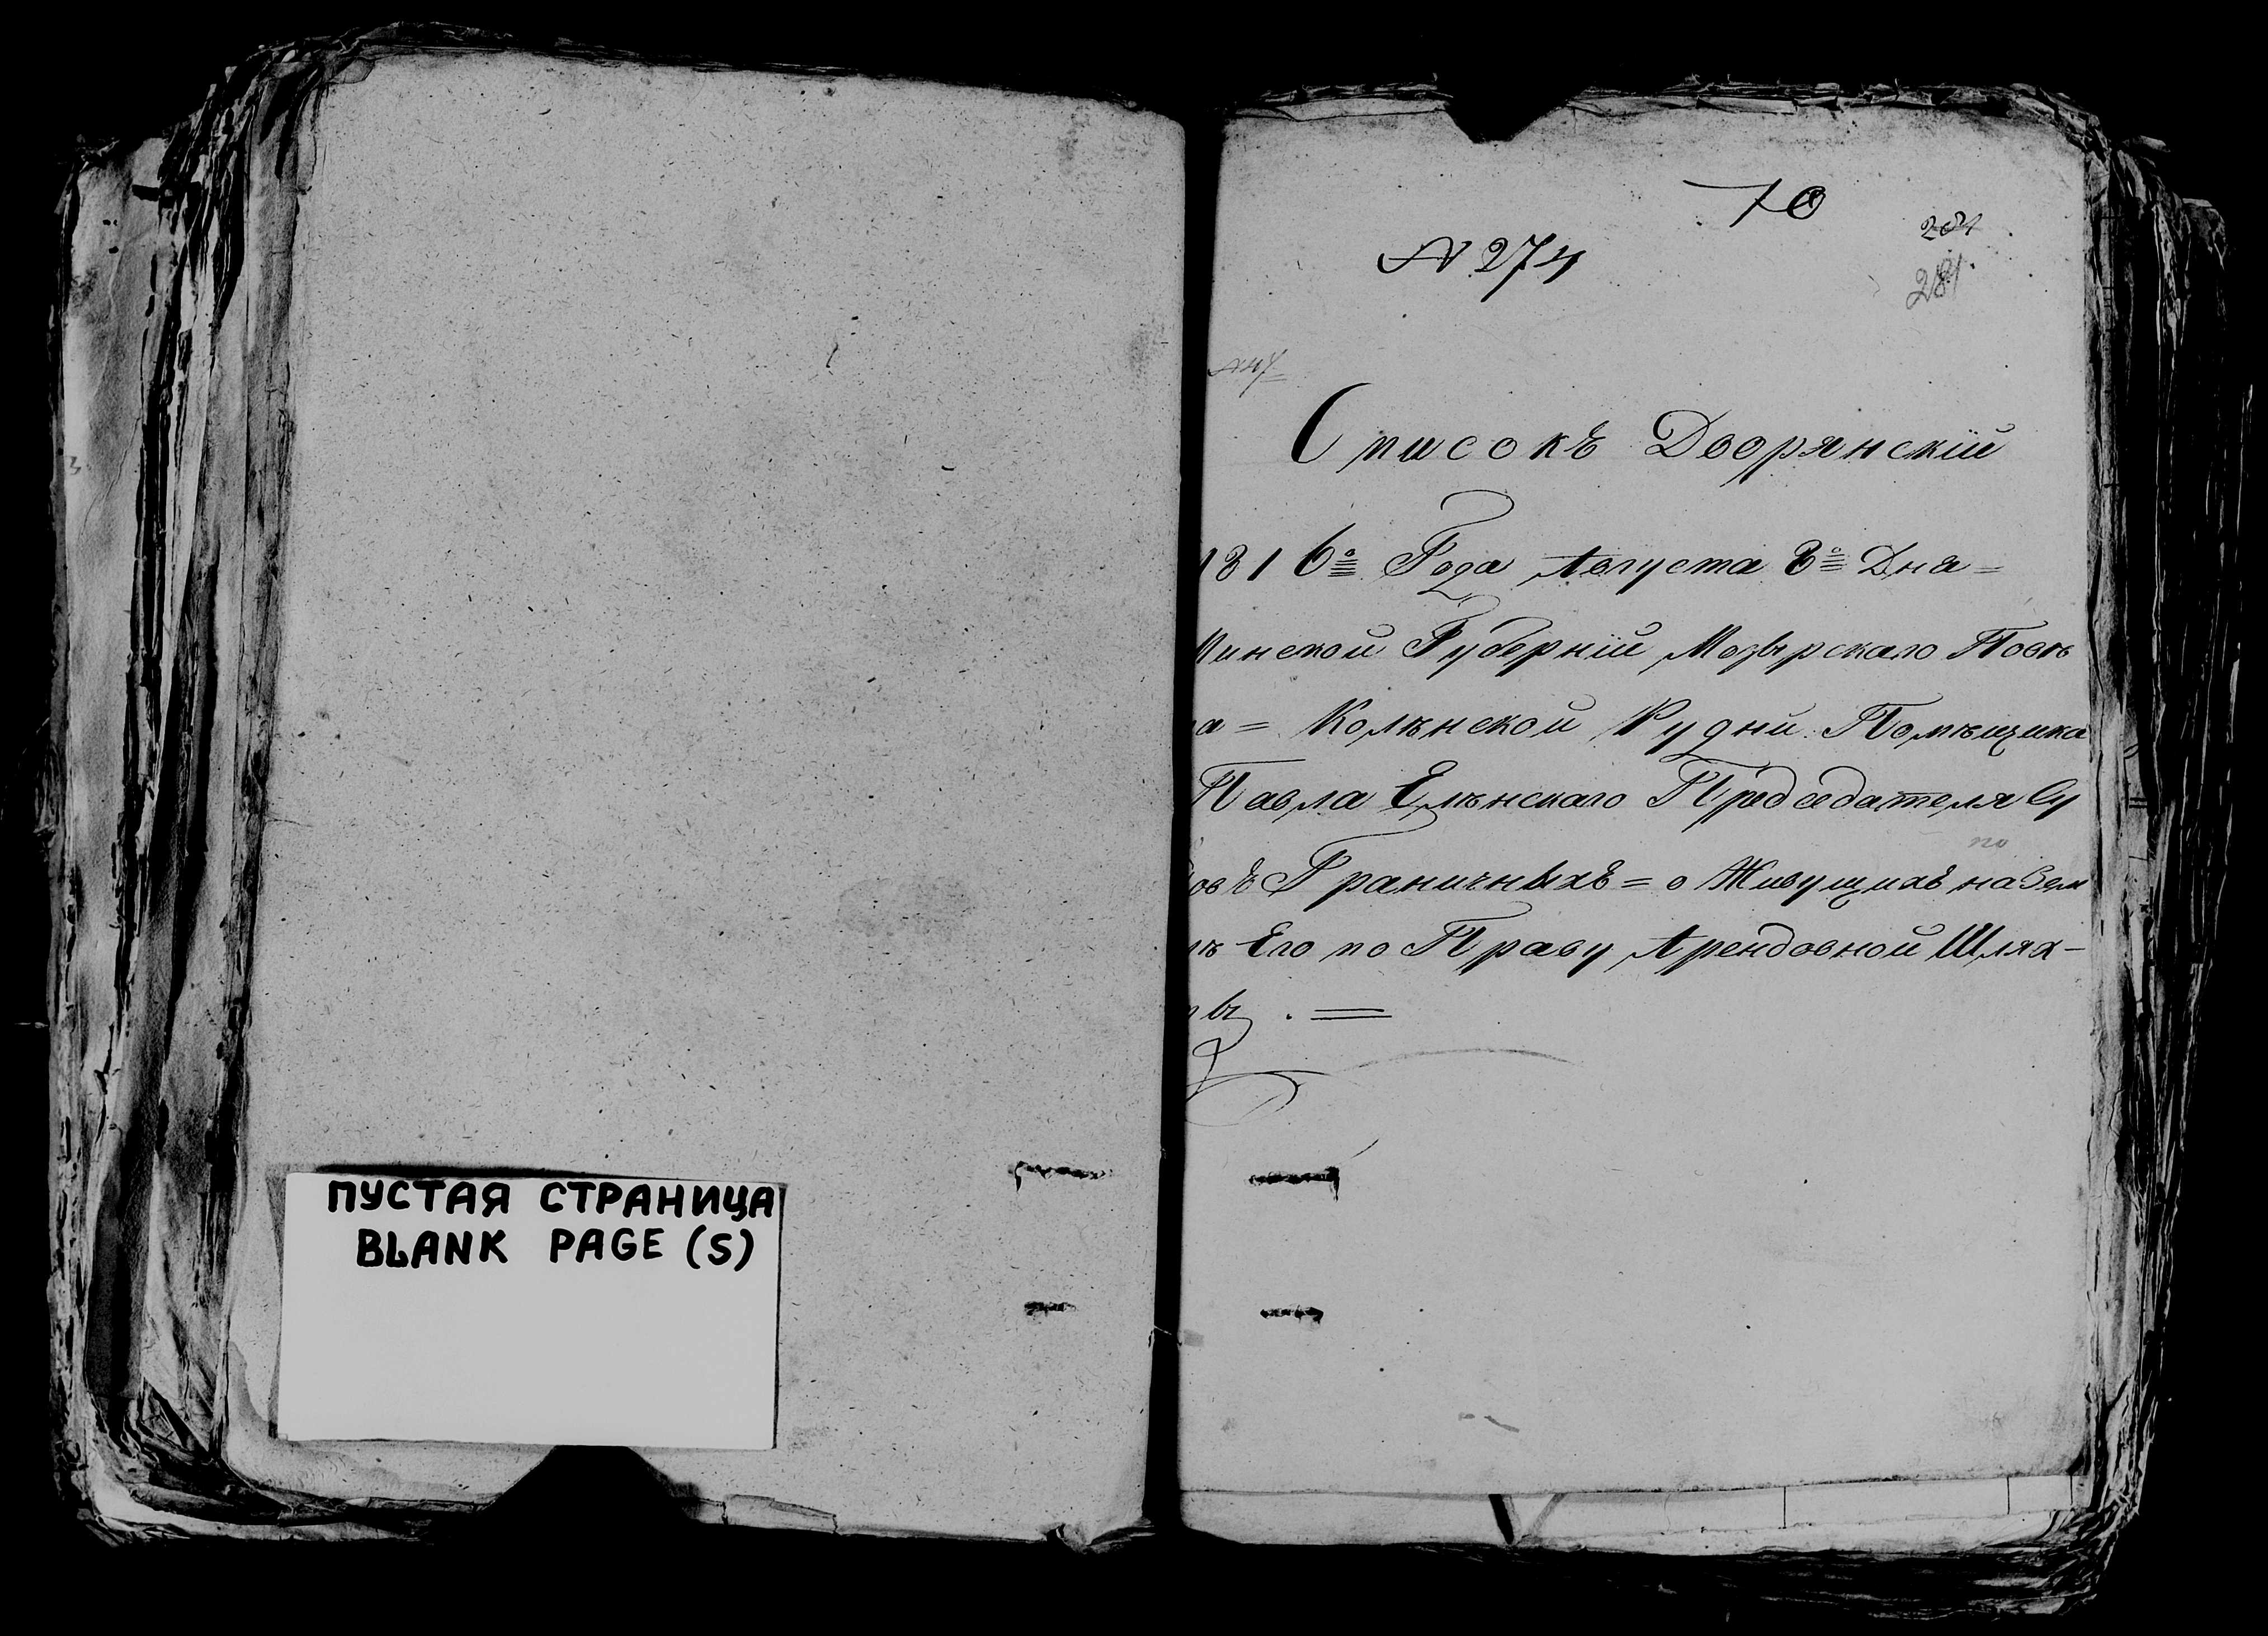 ПУСТАЯ СТРАНИЦА
BLANK PAGE (S)
70
N 274
281
Списокъ Дворянскій
1816º Года Августа 8º Дня =
Минской Губерніи Мозырскаго Повѣ
а = Колѣнской Рудни Помѣщика
Павла Еленскаго Председателя Су
овъ Граничныхъ = о Живущихъ на Зем
лѣ Его по Праву Арендовной Шлях-
ты . =